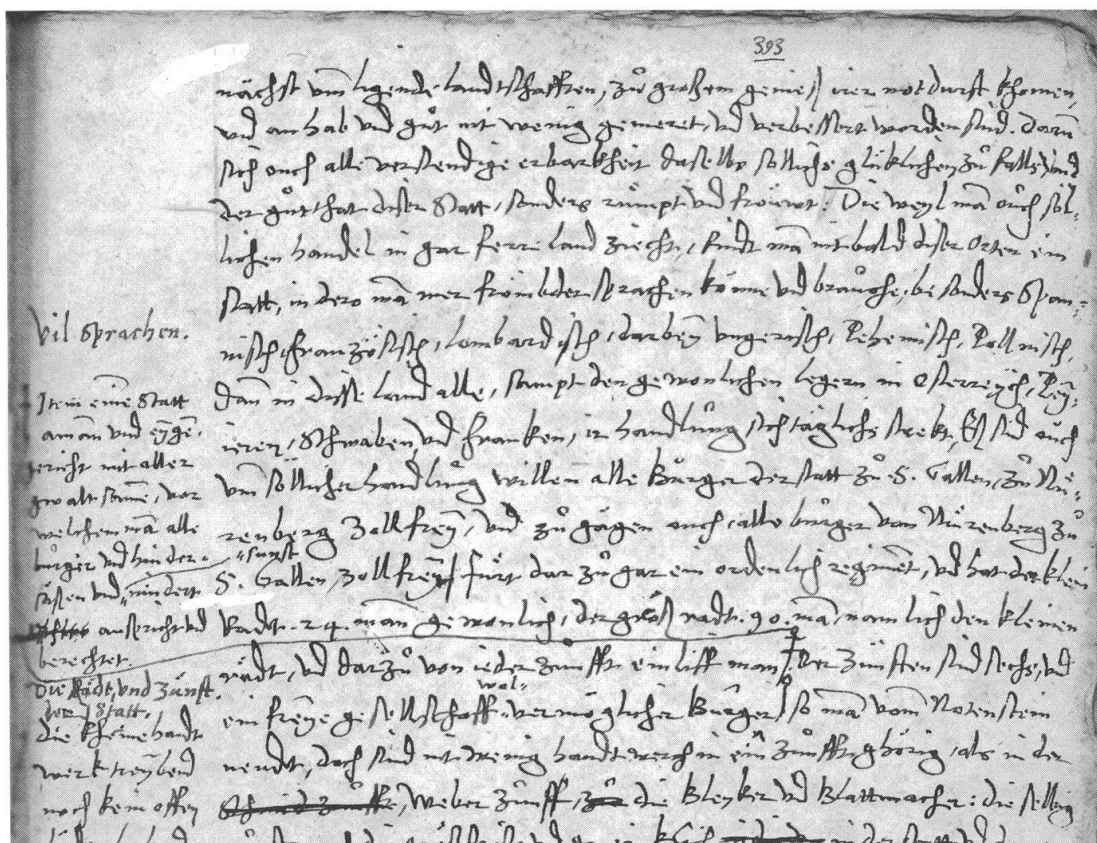 393
nächst um ligende landtschafften, zů großem genieß irer notdurft khomen,
und an hab und gůt nit wenig gemeret, und verbessert worden sind. Darum
sich ouch alle verstendige erbarkheit daselbs sölliche glüklichen zůfalls, und
der gůtthat diser Statt, sonders rümpt und fröuwt. Die weyl mā ouch söl-
lichen handel in gar ferre land zücht, findt mā nit bald diser orten ein
statt, in dero mā mer frömbder sprachen könne und bruche, besonders Span-
nisch, französisch, lombardisch, darbey ungerisch, Behemisch, Pollnisch,
Dan in disse land alle, sampt den gewonlichen legern in Osterreych, Bey-
eren, Schwaben, und franken, ir handlung sich täglichs strekt. Eß sind ouch
um söllicher handlung willen alle Burger der statt zů S. Gallen, zů Nü-
renberg Zollfrey, und zů gägen ouch alle burger von Nürenberg zů
S. Gallen, zollfrey. fürt dar zů gar ein ordenlich regimēt, und hat der klein
Radt .24. man gewonlich, der groß radt .90. mā, namlich den kleinen
radt, und darzů von ieder zunfft einliff man. Der zünften sind sechs, und
ein freye gesellschafft wol-vermöglicher Burger, so mā vom Notenstein
nendt, doch sind nit wenig handtwerch in ein zunfft ghörig, als in der
weber zunfft, die Bleyker und Blattmacher: die selbig
Vil Sprachen.
Item eine Statt
aman und eygē
gericht mit aller
gwaltsame, vor
welchem mā alle
burger und hinder-
säßen und sunst
anspricht und
berechtet.
Die Rädt, und Zünft
der Statt.
die kheine handt
werk treybend
noch kein offen